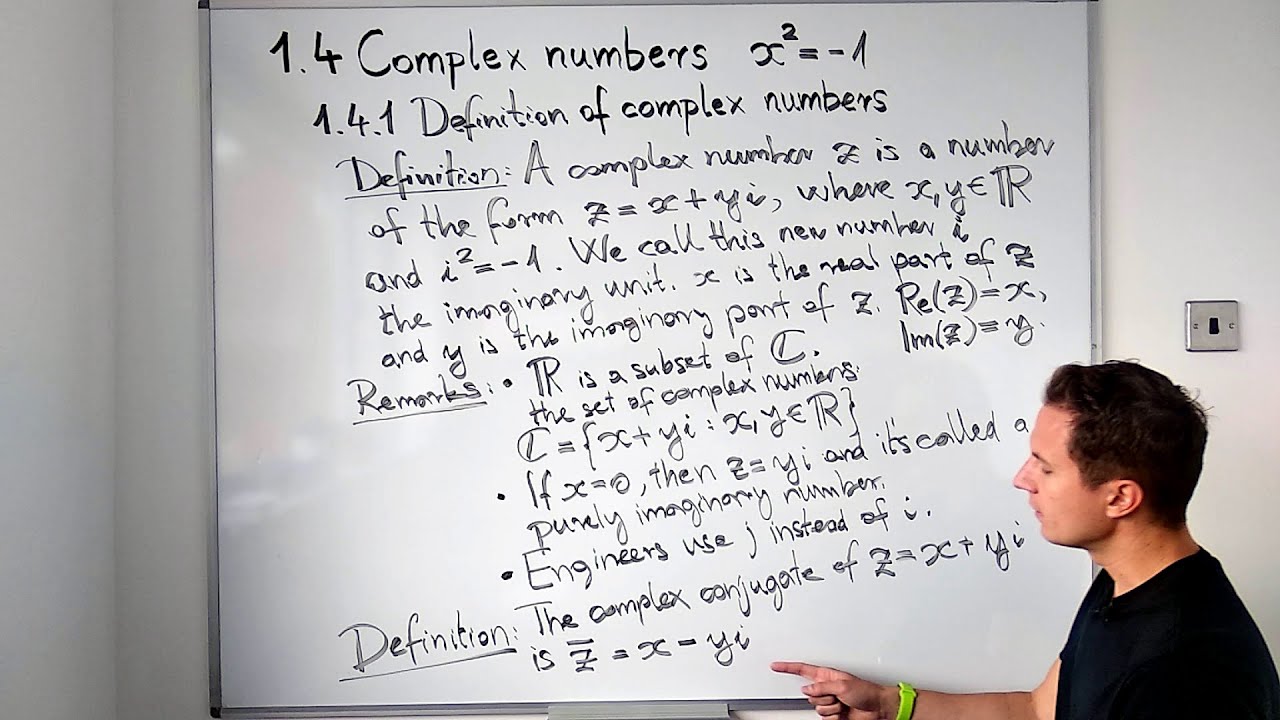 1.4 Complex numbers x² = -1
1.4.1 Definition of complex numbers
Definition: A complex number z is a number
of the form z = x + yi, where x, y ∈ ℝ
and i² = -1. We call this new number i
the imaginary unit. x is the real part of z
and y is the imaginary part of z. Re(z) = x,
Im(z) = y.
Remarks: • ℝ is a subset of ℂ.
the set of complex numbers.
ℂ = {x + yi : x, y ∈ ℝ}
• If x = 0, then z = yi and it's called a
purely imaginary number.
• Engineers use j instead of i.
Definition: The complex conjugate of z = x + yi
is z̅ = x - yi